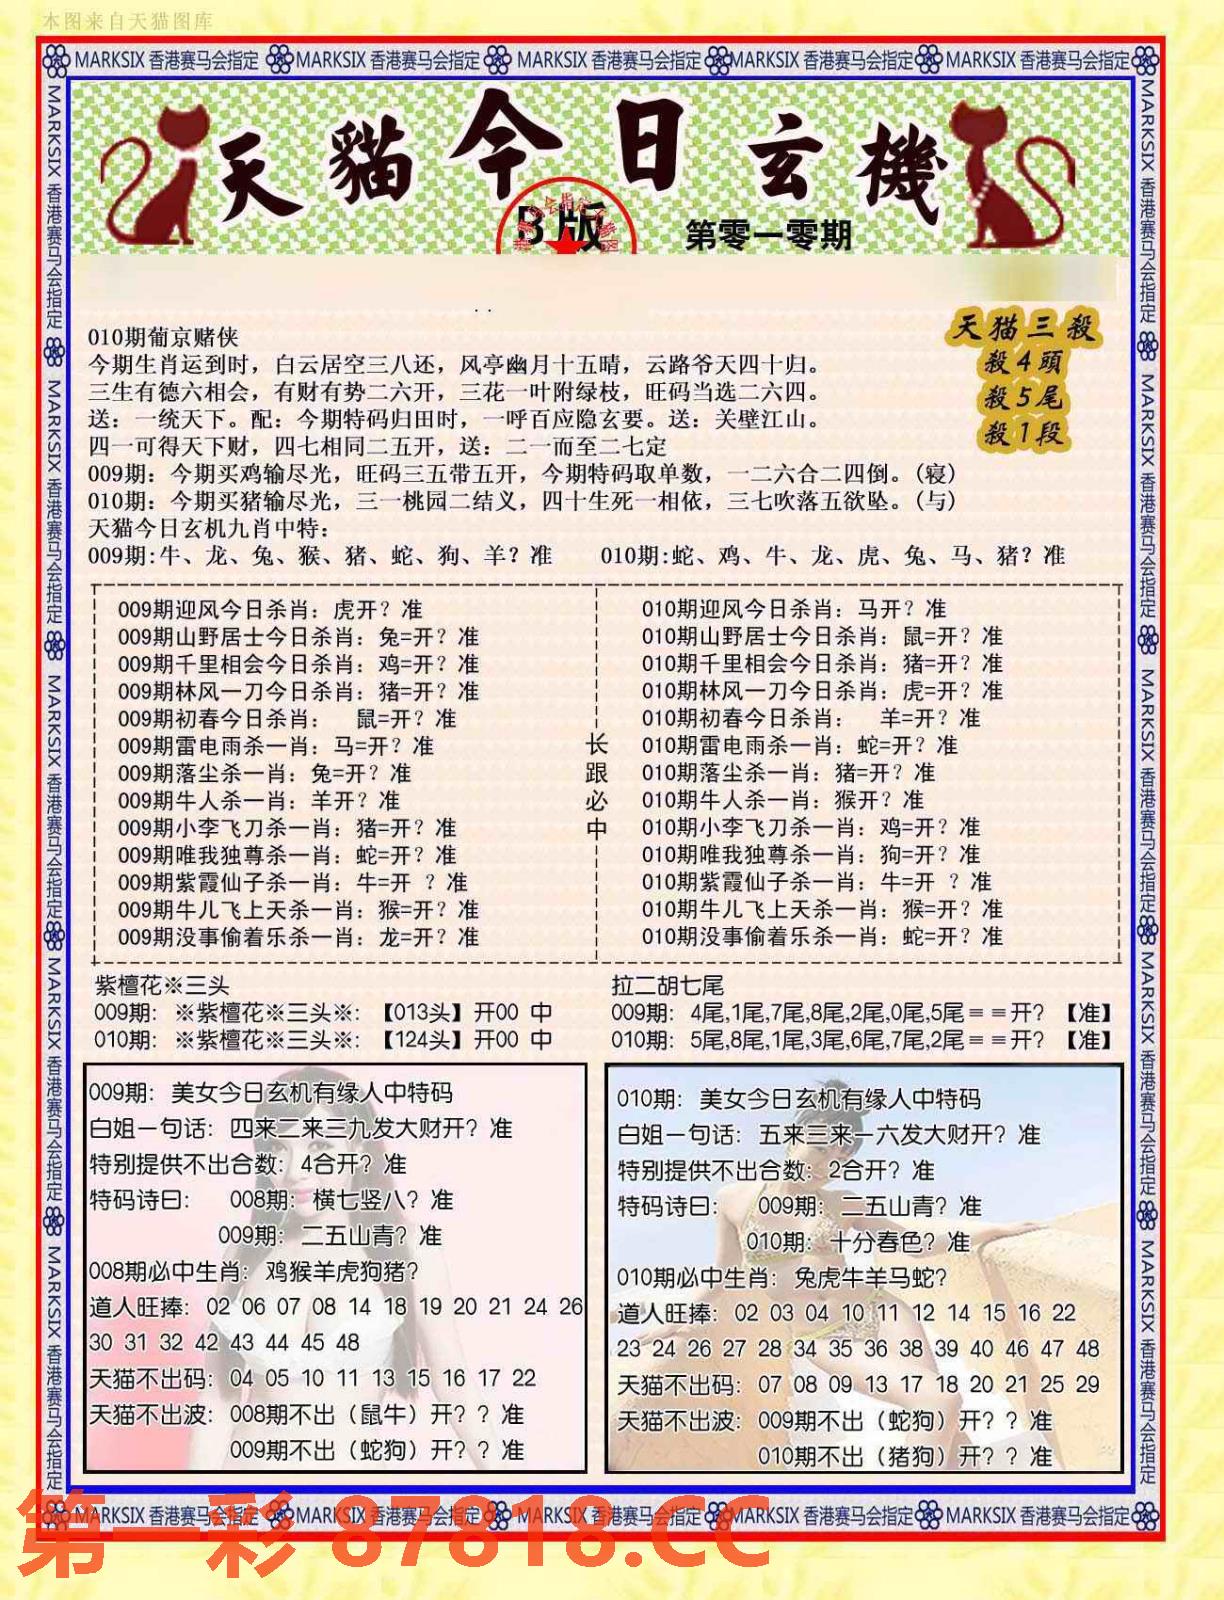 本图来自天猫图库
MARKSIX 香港赛马会指定 MARKSIX 香港赛马会指定 MARKSIX 香港赛马会指定 MARKSIX 香港赛马会指定 MARKSIX 香港赛马会指定
MARKSIX 香港赛马会指定 MARKSIX 香港赛马会指定 MARKSIX 香港赛马会指定 MARKSIX 香港赛马会指定 MARKSIX 香港赛马会指定
MARKSIX 香港赛马会指定 MARKSIX 香港赛马会指定 MARKSIX 香港赛马会指定 MARKSIX 香港赛马会指定 MARKSIX 香港赛马会指定
天貓今日玄機
B版
第零一零期
天猫三殺
殺4頭
殺5尾
殺1段
010期葡京赌侠
今期生肖运到时，白云居空三八还，风亭幽月十五晴，云路爷天四十归。
三生有德六相会，有财有势二六开，三花一叶附绿枝，旺码当选二六四。
送：一统天下。配：今期特码归田时，一呼百应隐玄要。送：关壁江山。
四一可得天下财，四七相同二五开，送：二一而至二七定
009期：今期买鸡输尽光，旺码三五带五开，今期特码取单数，一二六合二四倒。（寝）
010期：今期买猪输尽光，三一桃园二结义，四十生死一相依，三七吹落五欲坠。（与）
天猫今日玄机九肖中特：
009期:牛、龙、兔、猴、猪、蛇、狗、羊？准 010期:蛇、鸡、牛、龙、虎、兔、马、猪？准
009期迎风今日杀肖：虎开？准
009期山野居士今日杀肖：兔=开？准
009期千里相会今日杀肖：鸡=开？准
009期林风一刀今日杀肖：猪=开？准
009期初春今日杀肖： 鼠=开？准
009期雷电雨杀一肖：马=开？准
009期落尘杀一肖：兔=开？准
009期牛人杀一肖：羊开？准
009期小李飞刀杀一肖：猪=开？准
009期唯我独尊杀一肖：蛇=开？准
009期紫霞仙子杀一肖：牛=开 ？准
009期牛儿飞上天杀一肖：猴=开？准
009期没事偷着乐杀一肖：龙=开？准
长跟必中
010期迎风今日杀肖：马开？准
010期山野居士今日杀肖：鼠=开？准
010期千里相会今日杀肖：猪=开？准
010期林风一刀今日杀肖：虎=开？准
010期初春今日杀肖： 羊=开？准
010期雷电雨杀一肖：蛇=开？准
010期落尘杀一肖：猪=开？准
010期牛人杀一肖：猴开？准
010期小李飞刀杀一肖：鸡=开？准
010期唯我独尊杀一肖：狗=开？准
010期紫霞仙子杀一肖：牛=开 ？准
010期牛儿飞上天杀一肖：猴=开？准
010期没事偷着乐杀一肖：蛇=开？准
紫檀花※三头
009期：※紫檀花※三头※：【013头】开00 中
010期：※紫檀花※三头※：【124头】开00 中
拉二胡七尾
009期：4尾,1尾,7尾,8尾,2尾,0尾,5尾＝＝开？【准】
010期：5尾,8尾,1尾,3尾,6尾,7尾,2尾＝＝开？【准】
009期：美女今日玄机有缘人中特码
白姐一句话：四来二来三九发大财开？准
特别提供不出合数：4合开？准
特码诗曰： 008期：横七竖八？准
009期：二五山青？准
008期必中生肖：鸡猴羊虎狗猪？
道人旺捧：02 06 07 08 14 18 19 20 21 24 26
30 31 32 42 43 44 45 48
天猫不出码：04 05 10 11 13 15 16 17 22
天猫不出波：008期不出（鼠牛）开？？准
009期不出（蛇狗）开？？准
010期：美女今日玄机有缘人中特码
白姐一句话：五来三来一六发大财开？准
特别提供不出合数：2合开？准
特码诗曰： 009期：二五山青？准
010期：十分春色？准
010期必中生肖：兔虎牛羊马蛇？
道人旺捧：02 03 04 10 11 12 14 15 16 22
23 24 26 27 28 34 35 36 38 39 40 46 47 48
天猫不出码：07 08 09 13 17 18 20 21 25 29
天猫不出波：009期不出（蛇狗）开？？准
010期不出（猪狗）开？？准
MARKSIX 香港赛马会指定 MARKSIX 香港赛马会指定 MARKSIX 香港赛马会指定 MARKSIX 香港赛马会指定 MARKSIX 香港赛马会指定
第一彩 87818.CC